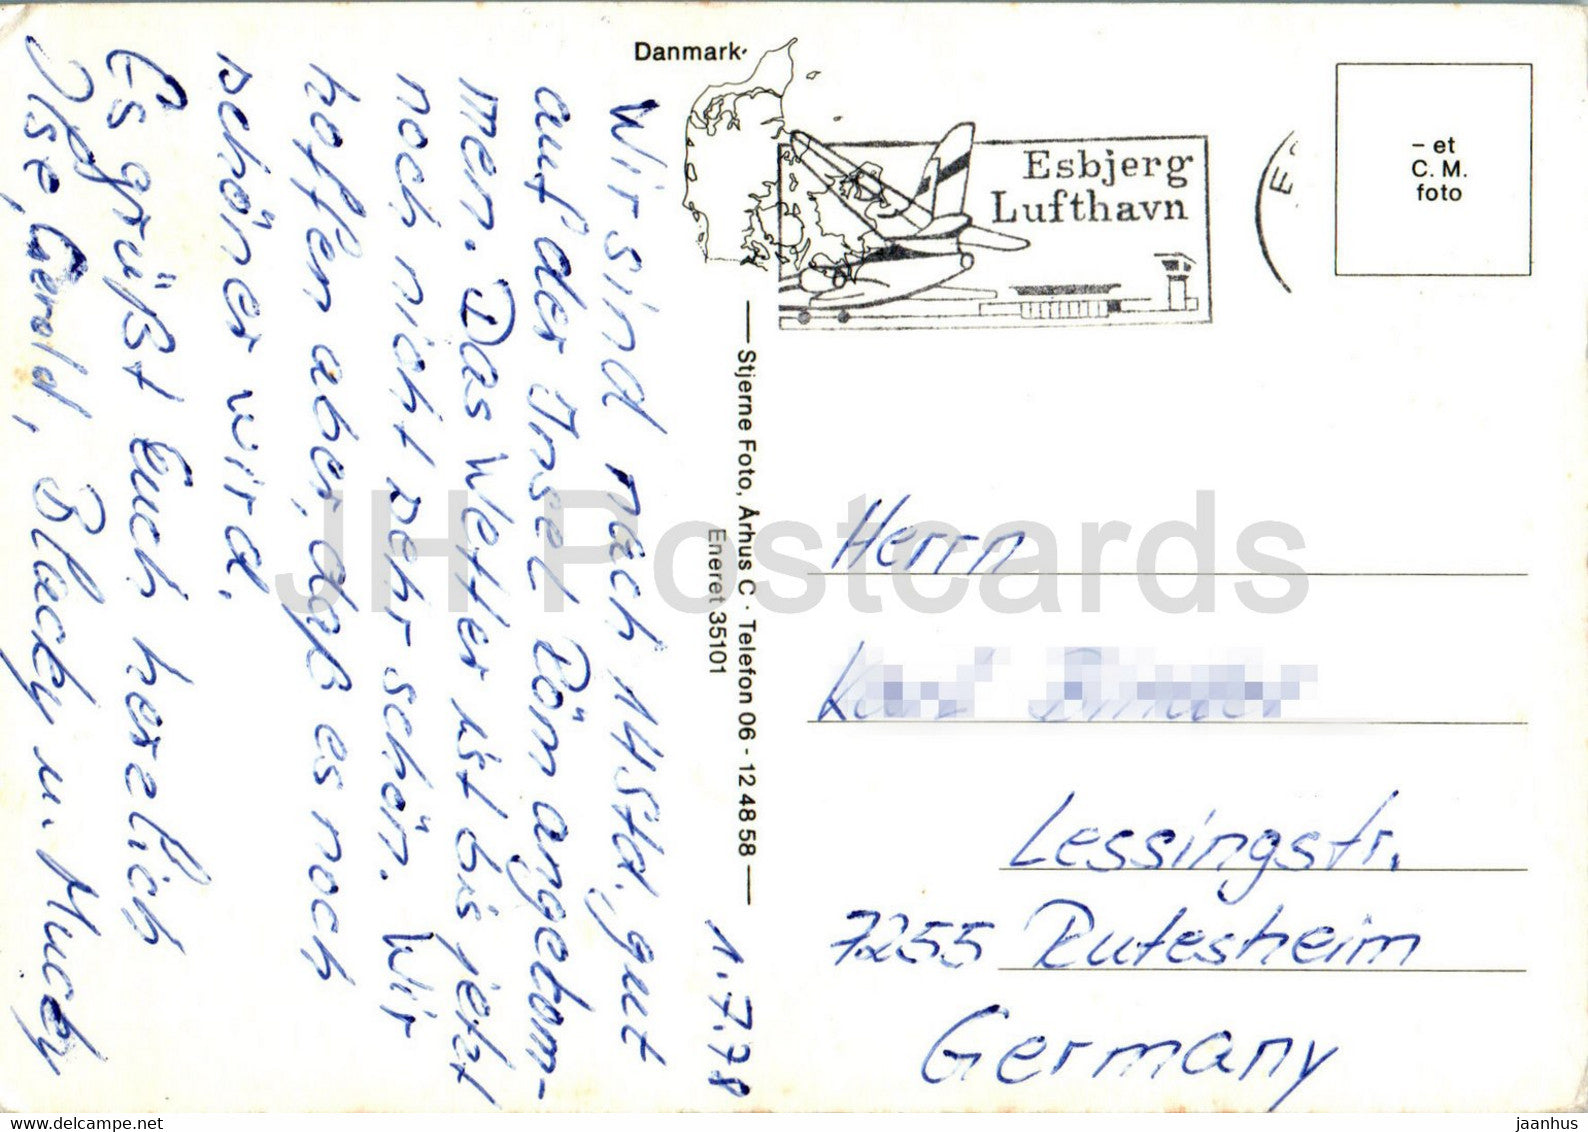 Danmark
Esbjerg
Lufthavn
E
– et
C. M.
foto
1.7.78
Wir sind nach 14 Std. gut
auf der Insel Röm angekom-
men. Das Wetter ist bis jetzt
noch nicht sehr schön. Wir
hoffen aber, daß es noch
schöner wird.
Es grüßt Euch herzlich
Ilse, Gerold, Blacky u. Mucky
Stjerne Foto, Århus C · Telefon 06 - 12 48 58
Eneret 35101
Herrn
Lessingstr.
7255 Rutesheim
Germany
JH Postcards
jaanhus